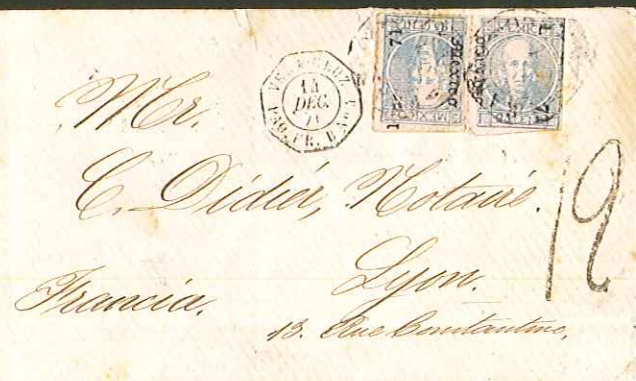 VERA-CRUZ
14
DEC.
71
PAQ. FR. D No 1
MEXICO
71
MEXICO
71
Mr.
C. Didier, Notaire.
Lyon.
Francia.
13. Rue Constantine,
12